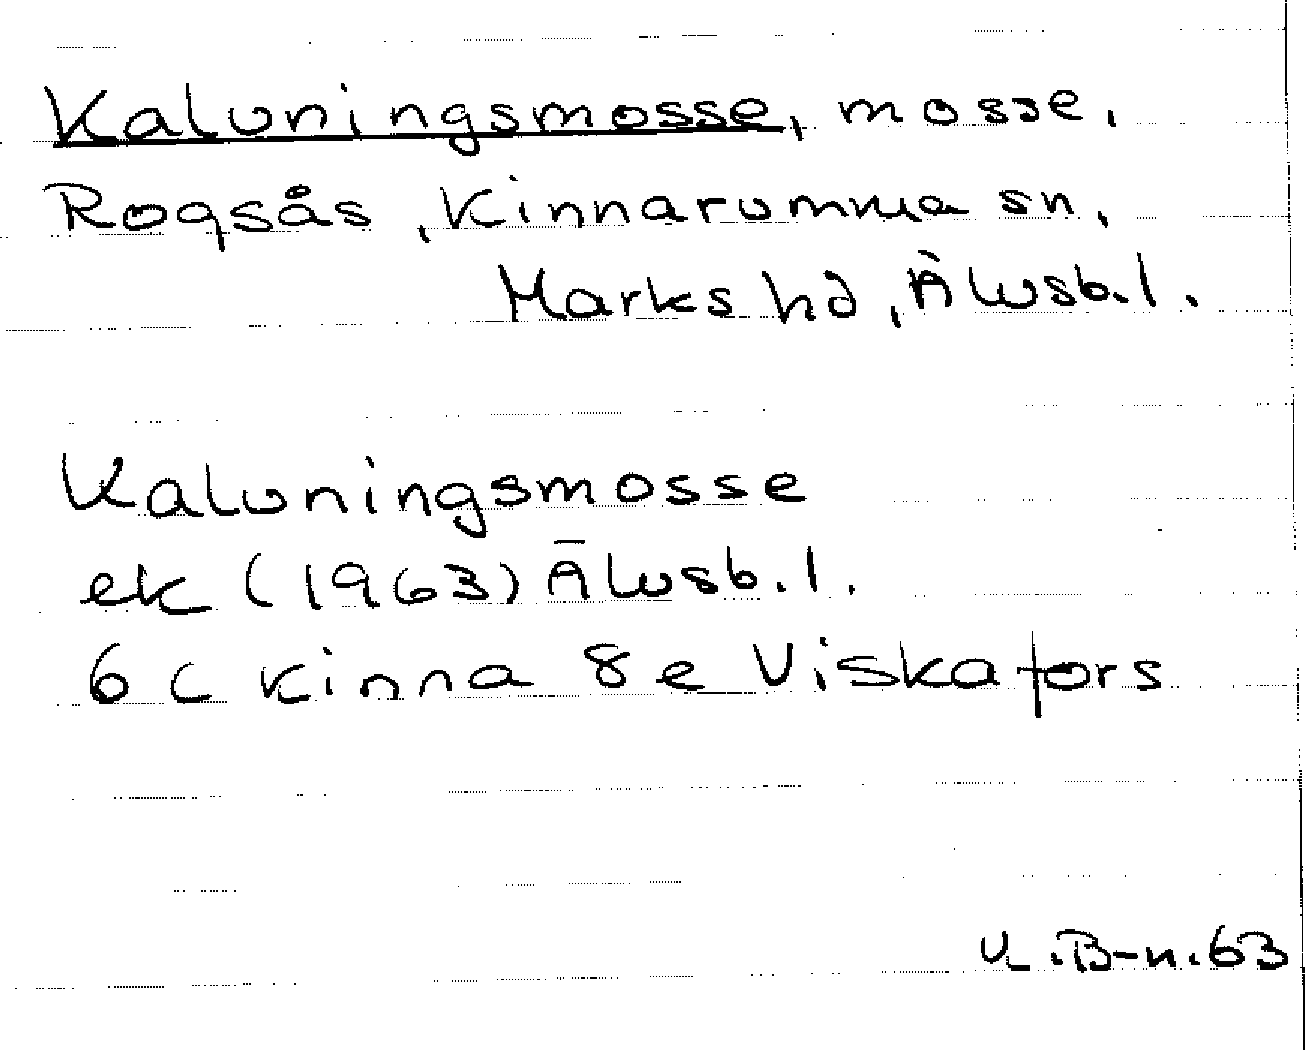 Kalvningsmosse, mosse,
Rogsås, Kinnarumma sn,
Marks hd, Älvsb.l.
Kalvningsmosse
ek (1963) Älvsb.l.
6C Kinna 8e Viskafors
B-n.63